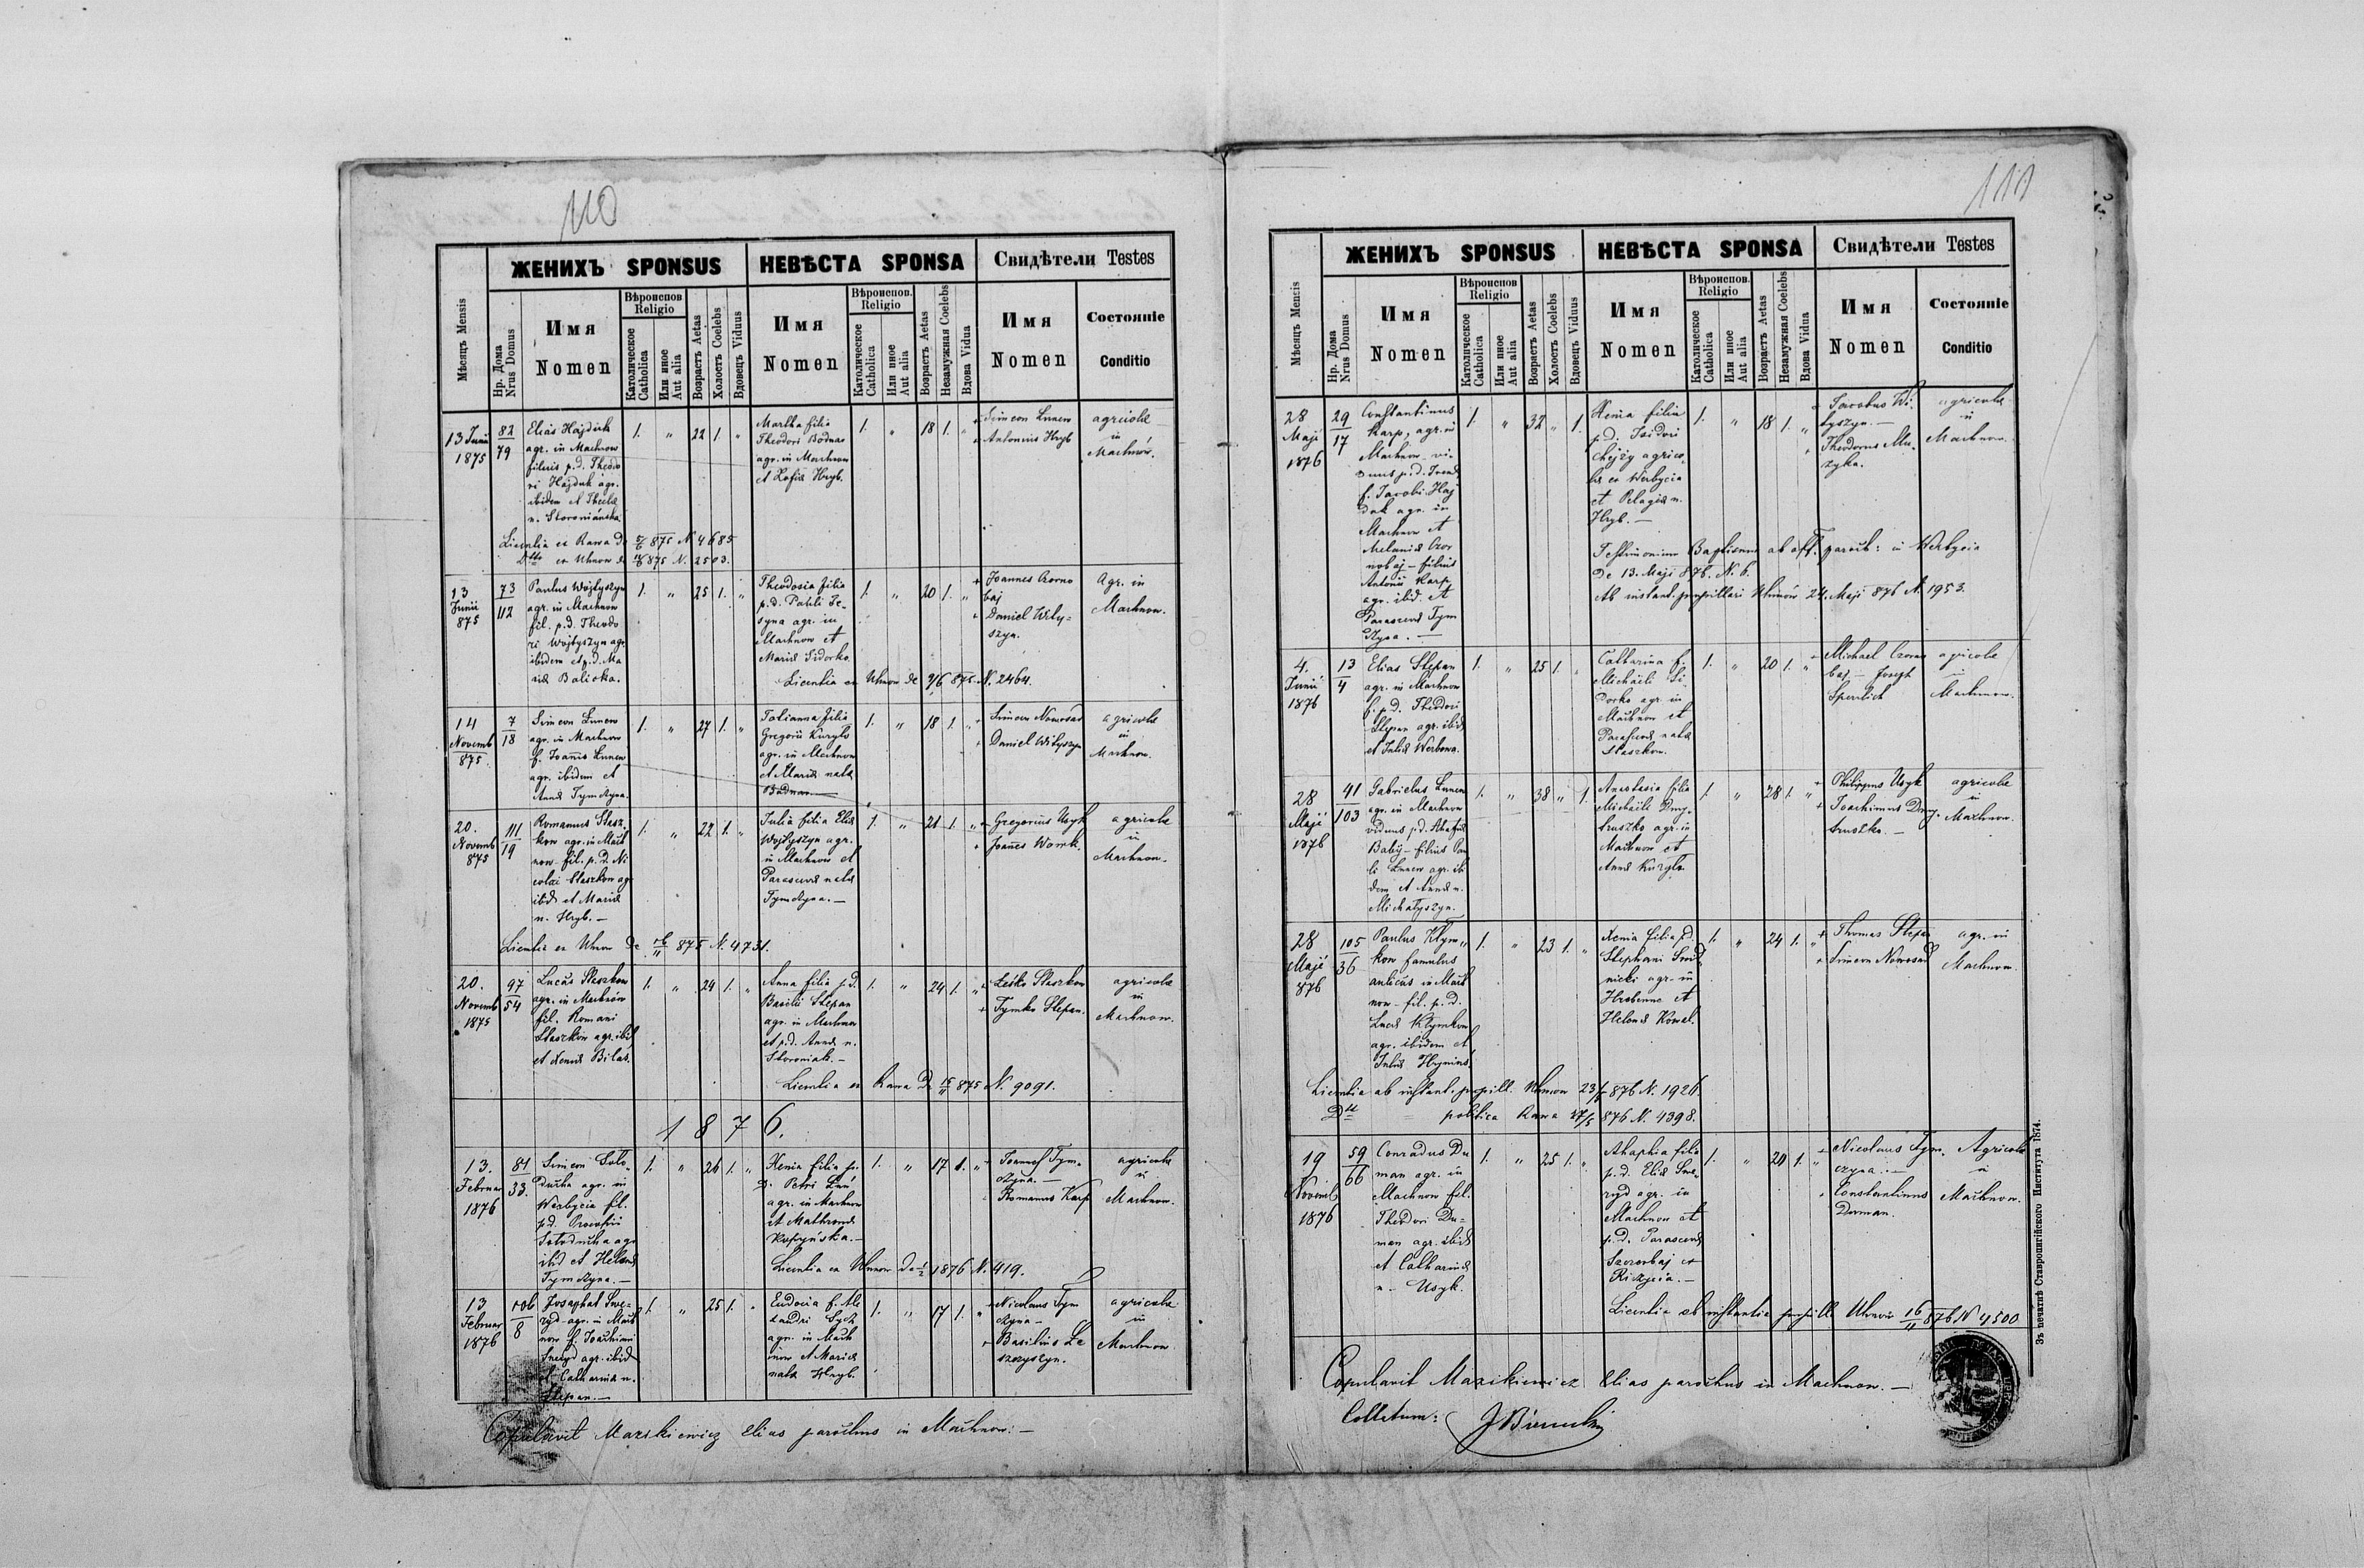 110
ЖЕНИХЪ SPONSUS
НЕВѢСТА SPONSA
Свидѣтели Testes
Мѣсяцъ Mensis
Нр. Дома
Nrus Domus
Имя
Nomen
Вѣроиспов.
Religio
Католическое
Catholica
Или иное
Aut alia
Возрастъ Aetas
Холостъ Coelebs
Вдовецъ Viduus
Имя
Nomen
Вѣроиспов.
Religio
Католическое
Catholica
Или иное
Aut alia
Возрастъ Aetas
Незамужная Coelebs
Вдова Vidua
Имя
Nomen
Состоянiе
Conditio
13 Junii
1875
82
79
Elias Hajduk
agr. in Machnow
filius p.d. Theodo
ri Hajduk agr.
ibidem et Thecla
n. Storoniańska
1. " 22 1. "
Martha filia
Theodori Bodnar
agr. in Machnow
et Zofia Hryb.
1. " 18 1. "
Simeon Lunew
Antonius Hryb
agricolæ
in
Machnów.
Licentia ex Rawa de 5/6 875 N. 4685
Dtto ex Uhnow de 875 N. 2503.
13
Junii
875
73
112
Paulus Wojtyszyn
agr. in Machnow
fil. p.d. Theodo
ri Wojtyszyn agr.
ibidem et p.d. Ma
riæ Balicka.
1. " 25 1. "
Theodosia filia
p.d. Pauli
agr. in
Machnow et
Maria Sidorko
1. " 20 1. "
Joannes Czorno
baj
Daniel Wity=
szyn.
Agr. in
Machnow.
Licentia ex Uhnow de 9/6 875. N. 2464.
14
Novemb
875
7
18
Simeon Lunew
agr. in Machnow
f. Joannis Lunew
agr. ibidem et
Anna Tymczyna.
1. " 27 1. "
Tatianna filia
Gregorii Kuryło
agr. in Machnow
et Maria nata
Bodnar.
1. " 18 1. "
Simeon Nowosad
Daniel Wityszyn
agricolæ
in
Machnow.
20.
Novemb
875
111
19
Romanus Stasz
kow agr. in Mach
now - fil. p.d. Ni
colai Staszkow agr
ibid et Maria
n. Hryb. -
1. " 22 1. "
Julia filia Elia
Wojtyszyn agr.
in Machnow et
Parasceva nata
Tymczyna. -
1. " 21 1. "
Gregorius Usyk
Joannes Womk.
agricolæ
in
Machnow.
Licentia ex Uhnow de 875 N. 4731.
20.
Novemb
1875
97
54
Lucas Staszkow
agr. in Machnów
fil. Romani
Staszkow agr. ibid
et Xenia Bilas.
1. " 24 1. "
Anna filia p.d.
Basilii Stepan
agr. in Machnow
et p.d. Anna n.
Storoniak. -
1. " 24 1. "
Leśko Staszkow
Tymko Stepan.
agricolæ
in
Machnow.
Licentia ex Rawa de 15/11 875 N. 9091.
1876.
13.
Februar
1876
81
33.
Simeon Soło
ducha agr. in
Werbycia fil.
p.d. Procofii
Sołoducha agr
ibid et Helena
Tymczyna. -
1. " 26 1. "
Xenia filia p.
d. Petri
agr. in Machnow
et Mathrona
1. " 17 1. "
Joannes Tym.
czyna. -
Romanus Karp
agricolæ
in
Machnow.
Licentia ex Uhnow de 1876 N. 419.
13
Februar
1876
106
8
Josaphat Swe=
ryd agr. in Mach
now f. Joachimi
Sweryd agr. ibid
et Catharina n.
Stepan. -
1. " 25 1. "
Eudocia f. Ale
xandri Sych
agr. in Mach
now et Maria
nata Hryb.
1. " 17 1. "
Nicolaus Tym
czyna -
Basilius Le
szczyszyn.
agricolæ
in
Machnow.
Copulavit Mazikiewicz Elias parochus in Machnow. -
111
ЖЕНИХЪ SPONSUS
НЕВѢСТА SPONSA
Свидѣтели Testes
Мѣсяцъ Mensis
Нр. Дома
Nrus Domus
Имя
Nomen
Вѣроиспов
Religio
Католическое
Catholica
Или иное
Aut alia
Возрастъ Aetas
Холостъ Coelebs
Вдовецъ Viduus
Имя
Nomen
Вѣроиспов.
Religio
Католическое
Catholica
Или иное
Aut alia
Возрастъ Aetas
Незамужная Coelebs
Вдова Vidua
Имя
Nomen
Состоянiе
Conditio
28
Maji
1876
29
17
Constantinus
Karp, agr. in
Machnow vi-
duus p.d.
f. Jacobi Haj
duk agr. in
Machnow et
Melania Czor
nobaj - filius
Antonii Karp
agr. ibid. et
Parasceva Tym
czyna. -
1. " 32 " 1.
Xenia filia
p.d. Isidori
agrico.
læ ex Werbycia
et Pelagia n.
Hryb. -
1. " 18 1. "
Jacobus Wi-
tyszyn. -
Theodorus Mu.
zyka.
agricolæ
in
Machnow.
Testimonium Baptismi ab off. paroch: in Werbycia
de 13. Maji 876. N. 6.
Ab instant. pupillari Uhnów 24. Maji 876 N. 1953.
4.
Junii
1876
13
4
Elias Stepan
agr. in Machnow
f. p.d. Theodori
Stepan agr. ibid
et Julia Werbowa.
1. " 25 1. "
Catharina f.
Michaelis Si-
dorko agr. in
Machnow et
Parasceva nata
Staszkow.
1. " 20 1. "
Michael Czorno
baj - Joseph
Sperlich
agricolæ
in
Machnow.
28
Maji
1876
41
103
Gabrielus Lunew
agr. in Machnow
viduus p.d. Ahafia
Babij - filius Pau
li Lunew agr. ibi
dem et Anna n.
Michałyszyn.
1. " 38 " 1.
Anastasia filia
Michaelis Dmy-
truszko agr. in
Machnow et
Anna Kuryło.
1. " 28 1. "
Philippus Usyk
Joachimus Dmy-
truszko. -
agricolæ
in
Machnow.
28
Maji
876
105
36
Paulus Klym
kow famulus
aulicus in Mach
now - fil. p.d.
Luca Klymkow
agr. ibidem et
Julia
1. " 23 1. "
Xenia filia p.d.
Stephani
agr. in
Hrebenne et
Helena Kowal.
1. " 24 1. "
Thomas Stepan
Simeon Nowosad
agr. in
Machnow.
Licentia ab instant. pupill. Uhnow 23/5 876 N. 1926.
Dtto politica Rawa 27/5 876 N. 4398.
19
Novemb
1876
59
66
Conradus Du
man agr. in
Machnow fil.
Theodori Du=
man agr. ibid
et Catharina
n. Usyk.
1. " 25 1. "
Ahaphia filia
p.d. Elia Swe
ryd agr. in
Machnow et
p.d. Parasceva
1. " 20 1. "
Nicolaus Tym.
czyna. -
Constantinus
Duman.
Agricolæ
in
Machnow.
Licentia ab instantia pupill. Uhnów 16/11 876 N 4500
Copulavit Mazikiewicz Elias parochus in Machnow. -
Collatum:
Зъ печатнѣ Ставропигійского Института 1874.